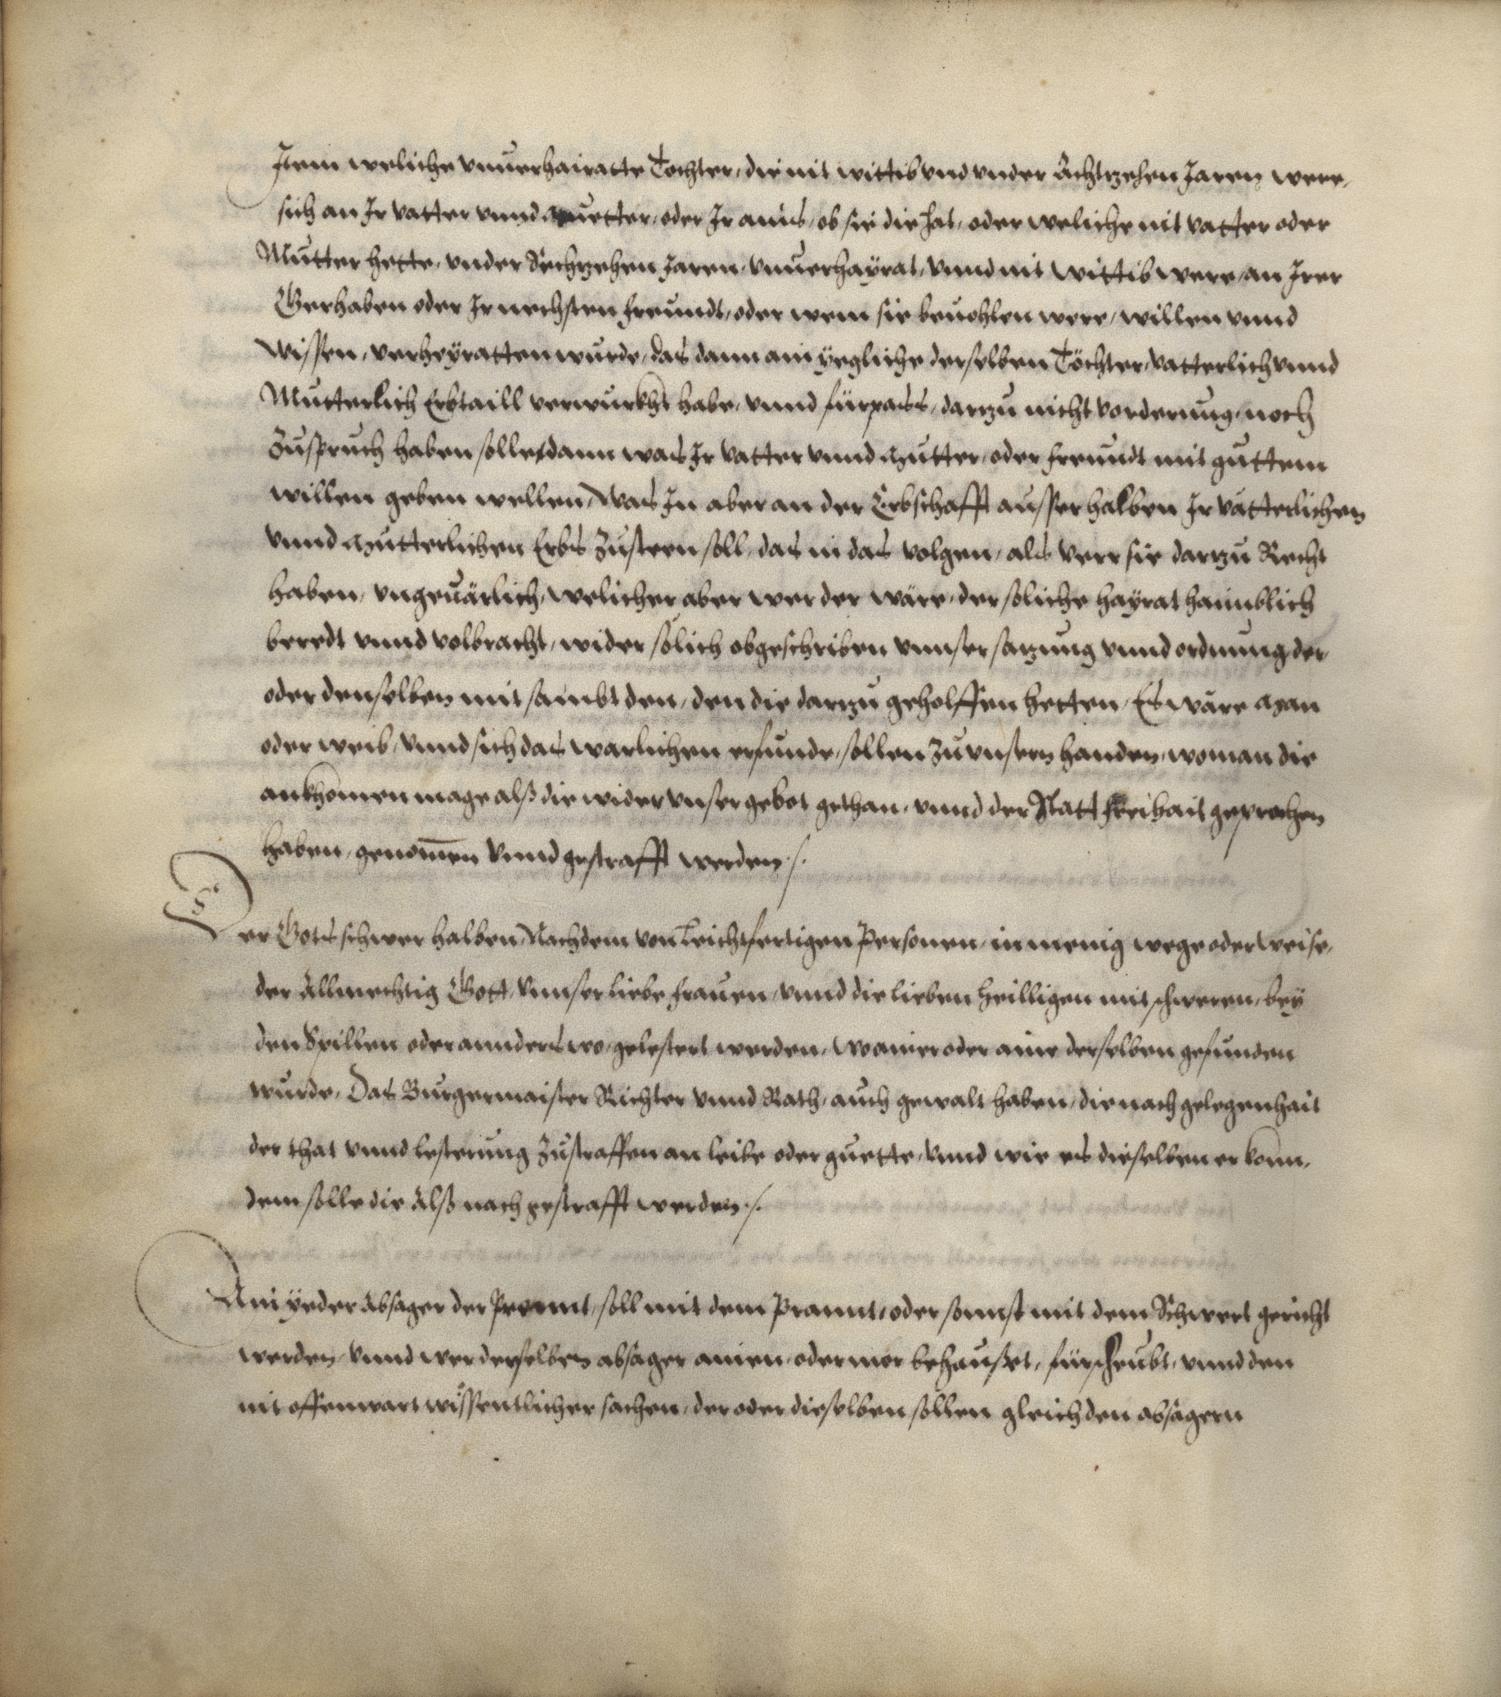 Item weliche vnuerhairatte Tochter, die nit wittib vnd vnder Achtzehen Jaren were,
sich an Ir vatter vnnd Muetter, oder Ir ains, ob sie die hat, oder weliche nit vatter oder
Mutter hette, vnder Achzehen Jaren, vnuerhayrat, vnnd nit wittib were, an Irer
Gerhaben oder Ir nechsten freundt, oder wem sie beuohlen were, willen vnnd
wissen, verheyratten wurde, das dann ain yegliche derselben Töchter, vatterlich vnnd
Mutterlich Erbtaill verwurkht habe, vnnd fürpass, darzu nicht vorderung, noch
Zuspruch haben solle, dann was Ir vatter vnnd Mutter, oder freundt mit guttem
willen geben wellen, Was In aber an der Erbschafft ausserhalben Ir vätterlichen
vnnd Mutterlichen Erbs Zusteen soll, das in das volgen, als verr sie darzu Recht
haben, vngeuärlich, welicher aber wer der wäre, der soliche hayrat haimblich
beredt vnnd volbracht, wider solich obgeschriben vnnser sazung vnnd ordnung der
oder denselben mit sambt den, den die darzu geholffen hetten, Es wäre Man
oder weib, vnnd sich das warlichen erfunde, sollen Zu vnsern handen, wo man die
ankhomen mage alß die wider vnser gebot gethan, vnnd der Statt freihait geprochen
haben, genomen vnnd gestrafft werden ./.
Der Gots schwer halben, Nachdem von Leichtfertigen Personen, in menig wege oder weise,
der Allmechtig Gott, vnnser liebe frauen, vnnd die lieben heilligen mit schweren, bey
den Spillen oder annders wo, gelestert werden, Wo ainer oder aine derselben gefunden
wurde, Das Burgermaister Richter vnnd Rath, auch gewalt haben, die nach gelegenhait
der that vnnd lesterung Zustraffen an leibe oder guette, vnnd wie es dieselben erkonn,
dem solle die Alß nach gestrafft werden ./.
Ain yeder Absager der Prennt, soll mit dem Prannt, oder sonnst mit dem Schwert gericht
werden, vnnd wer derselben absager ainen, oder mer behauset, fürscheubt, vnnd den
nit offenwart wissentlicher sachen, der oder dieselben sollen gleich den absagern